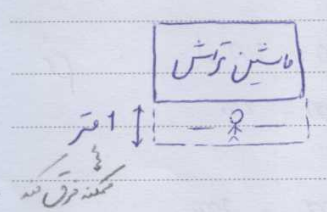 ماشین تراش
1 متر
ممکنه فرق کنه